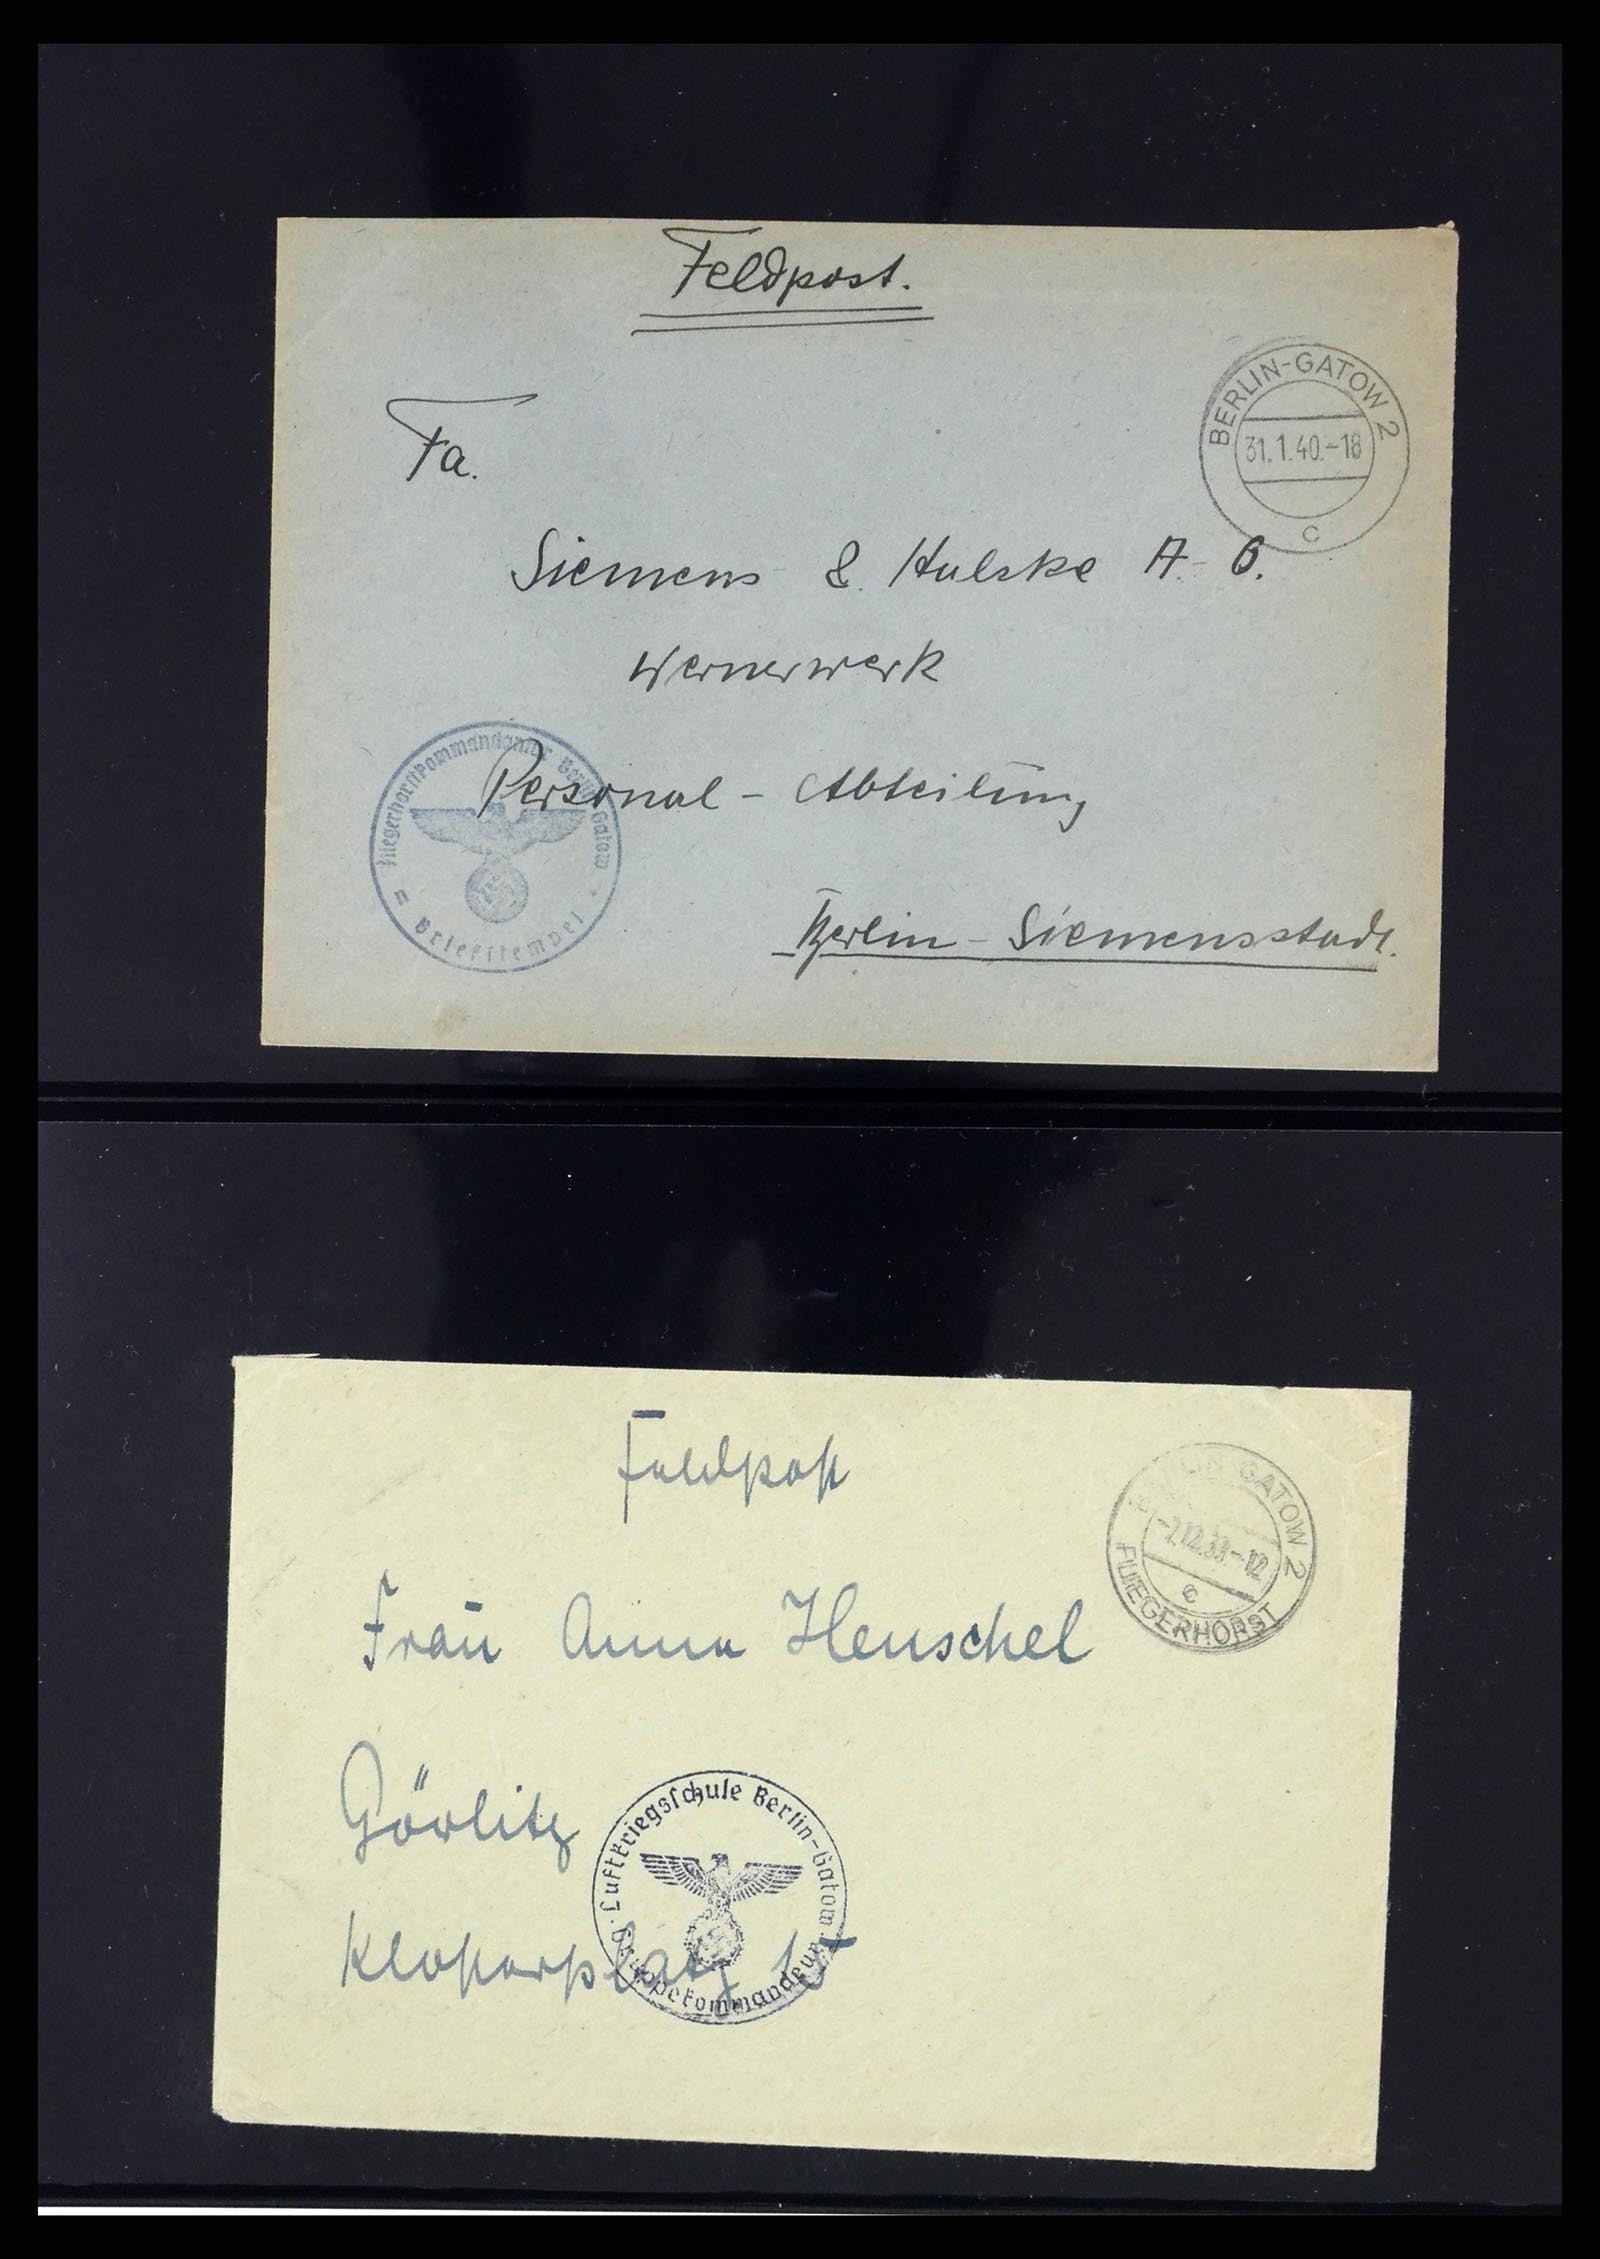 Feldpost.
BERLIN-GATOW 2
31.1.40.-18
c
Fa.
Siemens & Halske A.-G.
Wernerwerk
Personal - Abteilung
Fliegerhorstkommandantur Berlin-Gatow
Briefstempel
Berlin - Siemensstadt.
Feldpost
BERLIN GATOW 2
-2.12.39.-12
c
FLIEGERHORST
Frau Anna Henschel
Görlitz
Luftkriegsschule Berlin-Gatow
Gruppekommandeur